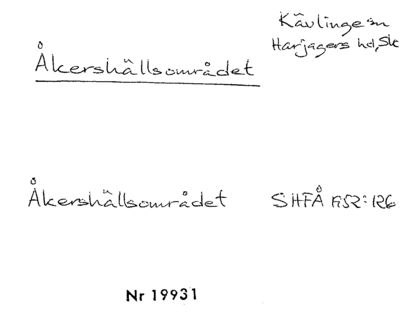 Kävlinge sn
Harjagers hd, Sk
Åkershällsområdet
Åkershällsområdet SHFÅ 1952:126
Nr 19931